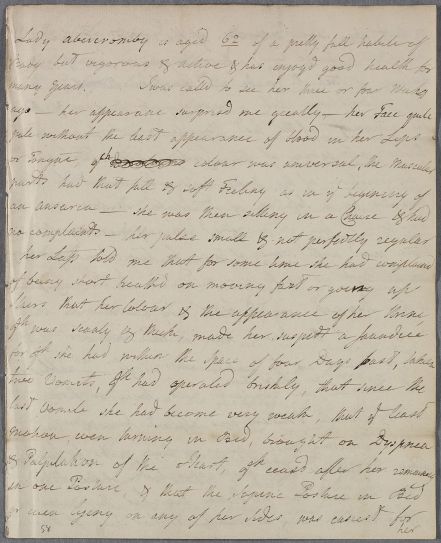 Lady abercromby is aged 60 of a pretty full habite of
Body but vigorous & active & has enjoyd good health for
many years. I was calld to see her three or four weeks
ago – her appearance surprised me greatly – her Face quite
pale without the least appearance of blood in her Lips
or Tongue, qch colour was universal, the Muscular
parts had that full & soft Feeling as in ye beginning of
an anasarca – she was then sitting in a Chaire & had
no complaints – her pulse small & not perfectly regular
her Lasp told me that for some time she had complained
of being short breath'd on moving fast or going up
Stairs that her Colour & the appearance of her Urine
qch was scanty & thick, made her suspect a jaundice
for qch she had within the space of four Days past, taken
three Vomits, qch had operated briskly, that since the
last vomite she had become very weak, that ye least
motion, even turning in Bed, brought on Dyspnea
& Palpitation of the Heart, qch ceasd after her remaining
in one Posture, & that the Supine Posture in Bed
or even lying on any of her sides was easiest for
her